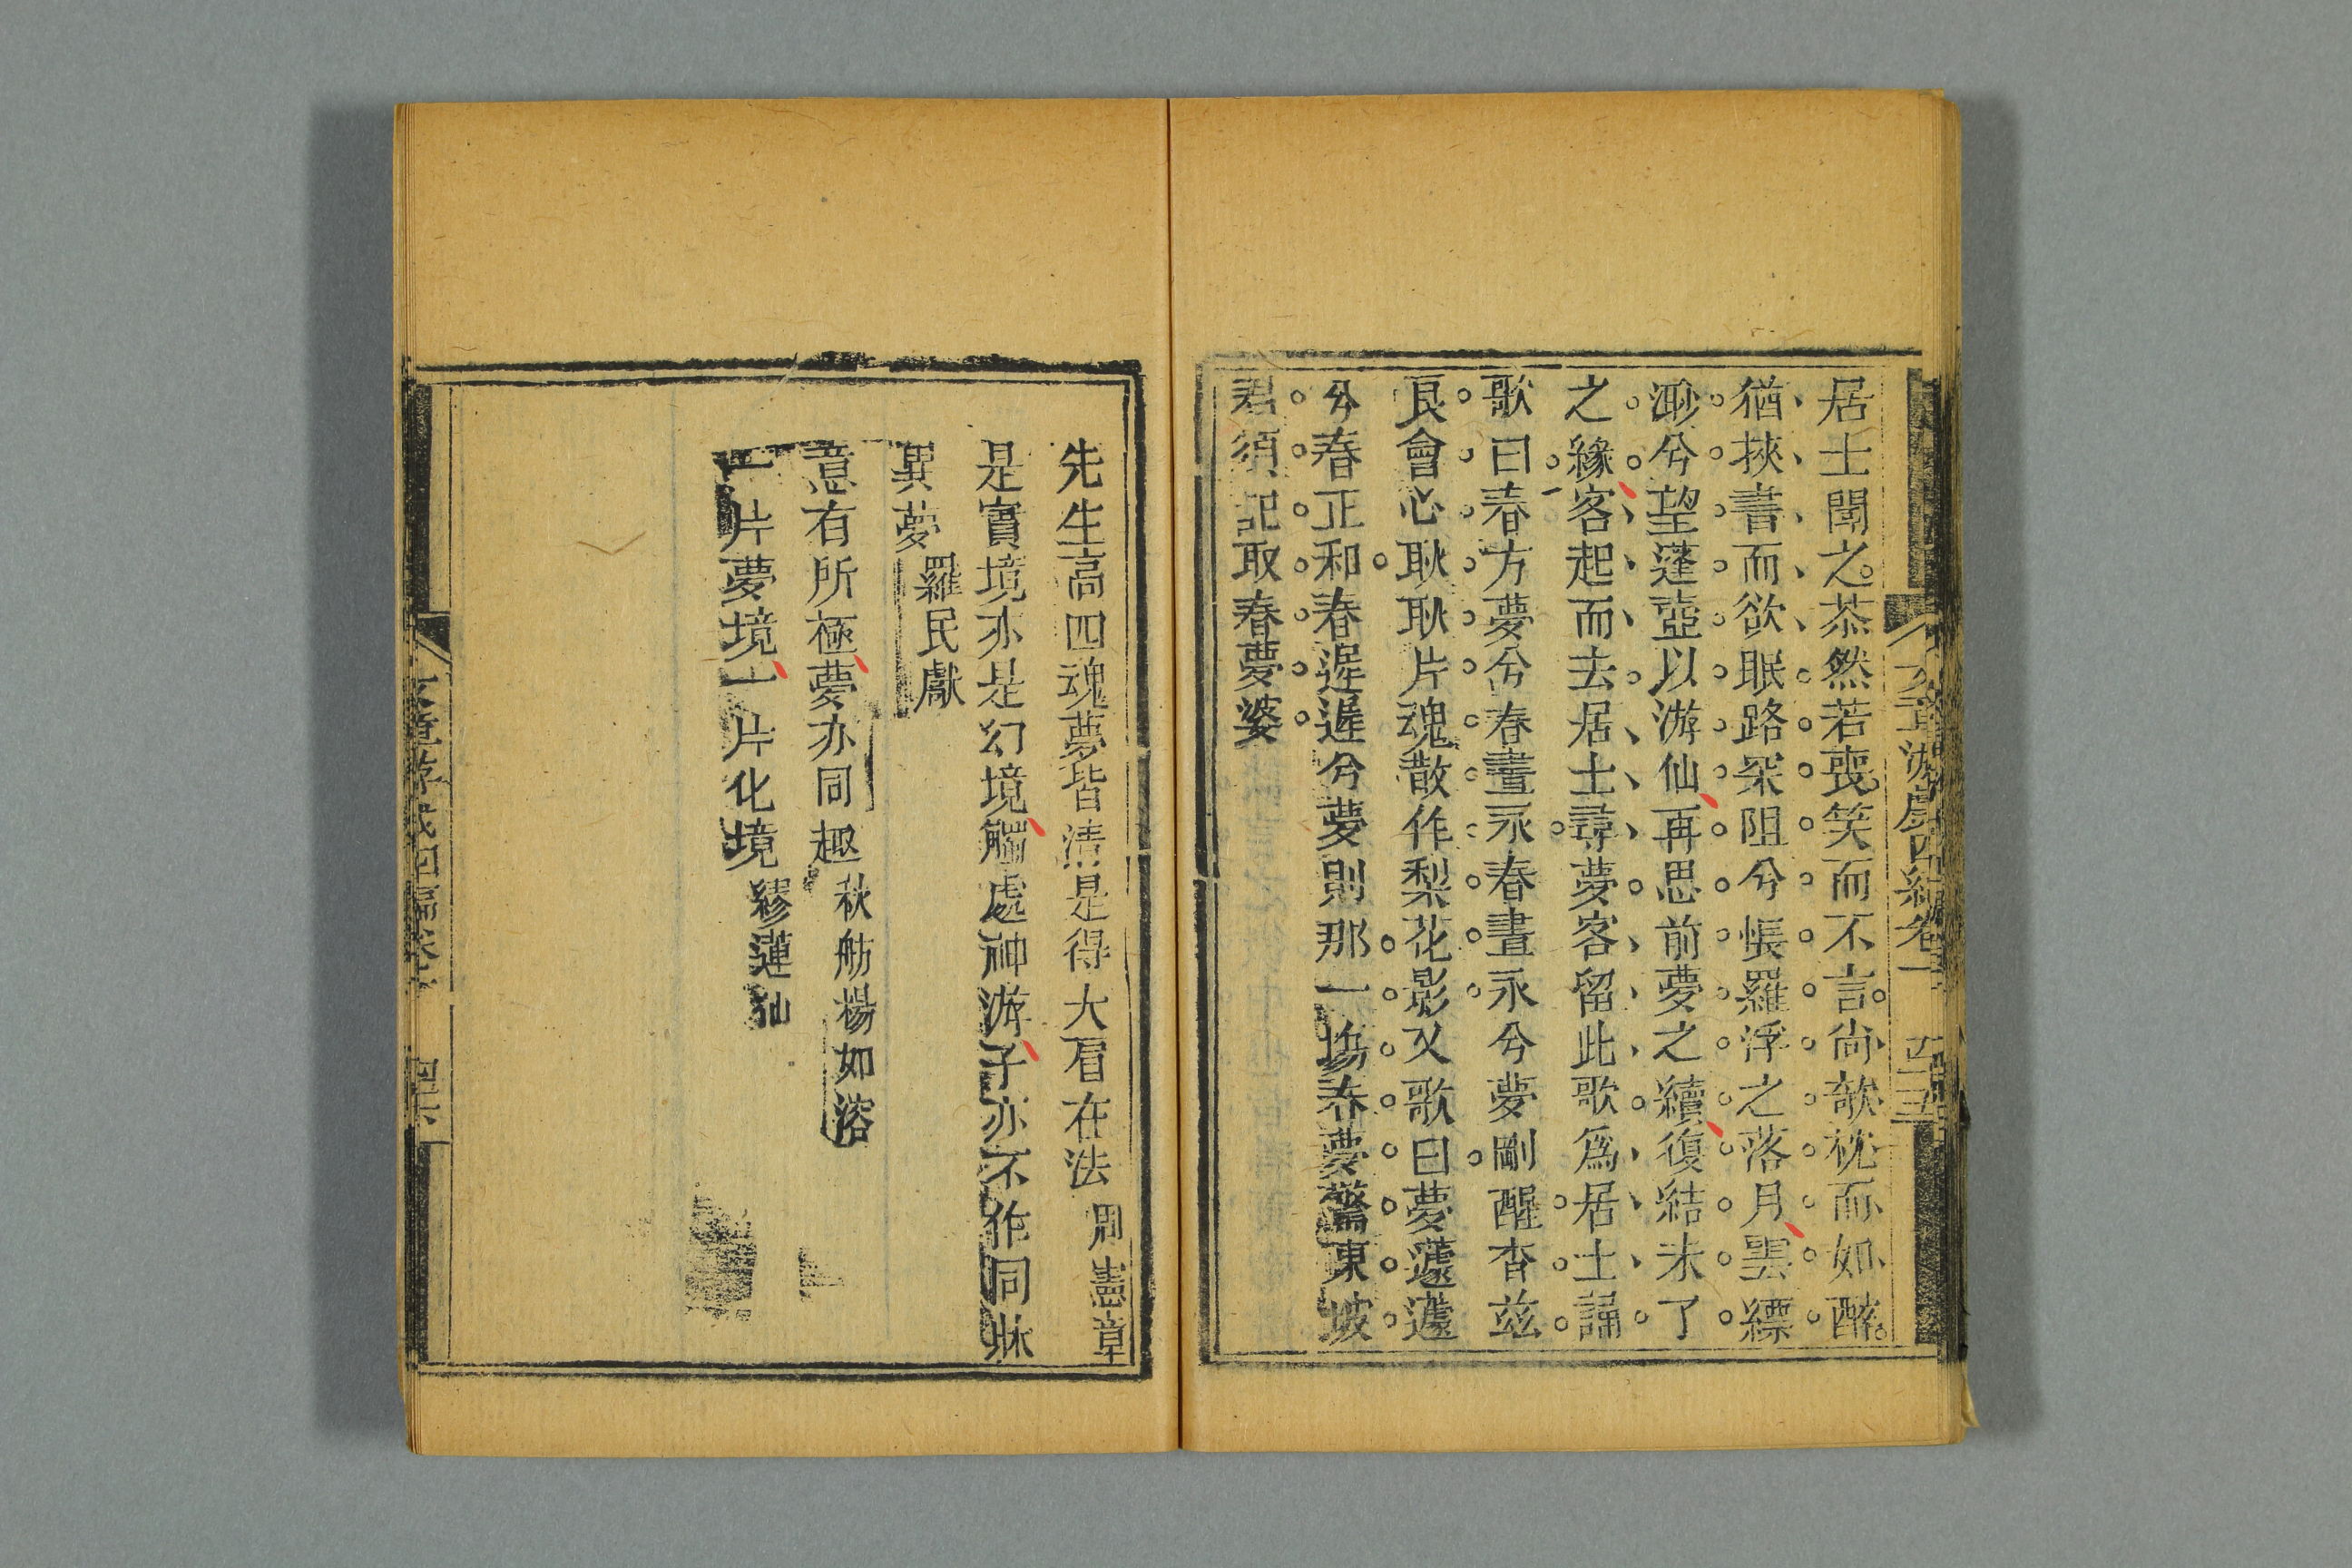 居士聞之茶然若喪笑而不言尙欹枕而如醉
猶挾書而欲眠路罙阻兮悵羅浮之落月雲縹
渺兮望蓬壺以游仙再思前夢之續復結未了
之緣客起而去居士尋夢客留此歌爲居士誦
歌曰春方夢兮春晝永春晝永兮夢剛醒杳茲
良會心耿耿片魂散作梨花影又歌曰夢蘧蘧
兮春正和春遲遲兮夢則那一塲春夢驚東坡
君須記取春夢婆
先生高四魂夢皆清是得大眉在法 周憲章
是實境亦是幻境觸處神游子亦不作同牀
異夢 羅民獻
意有所極夢亦同趣 秋舫楊如溶
一片夢境一片化境 繆蓮仙
文章游戲四編卷